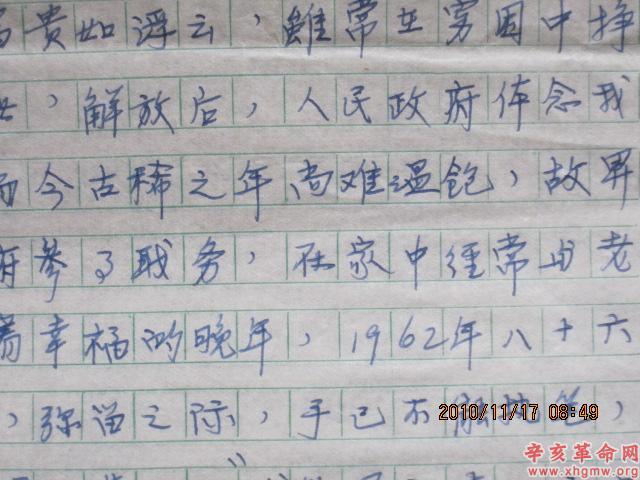 贵如浮云，雖常在穷困中挣
，解放后，人民政府体念我
今古稀之年尚难温饱，故畀
府参了职务，在家中经常与老
着幸福的晚年，1962年八十六
，弥留之际，手已不能执笔，
2010/11/17 08:49
辛亥革命网
www.xhgmw.org